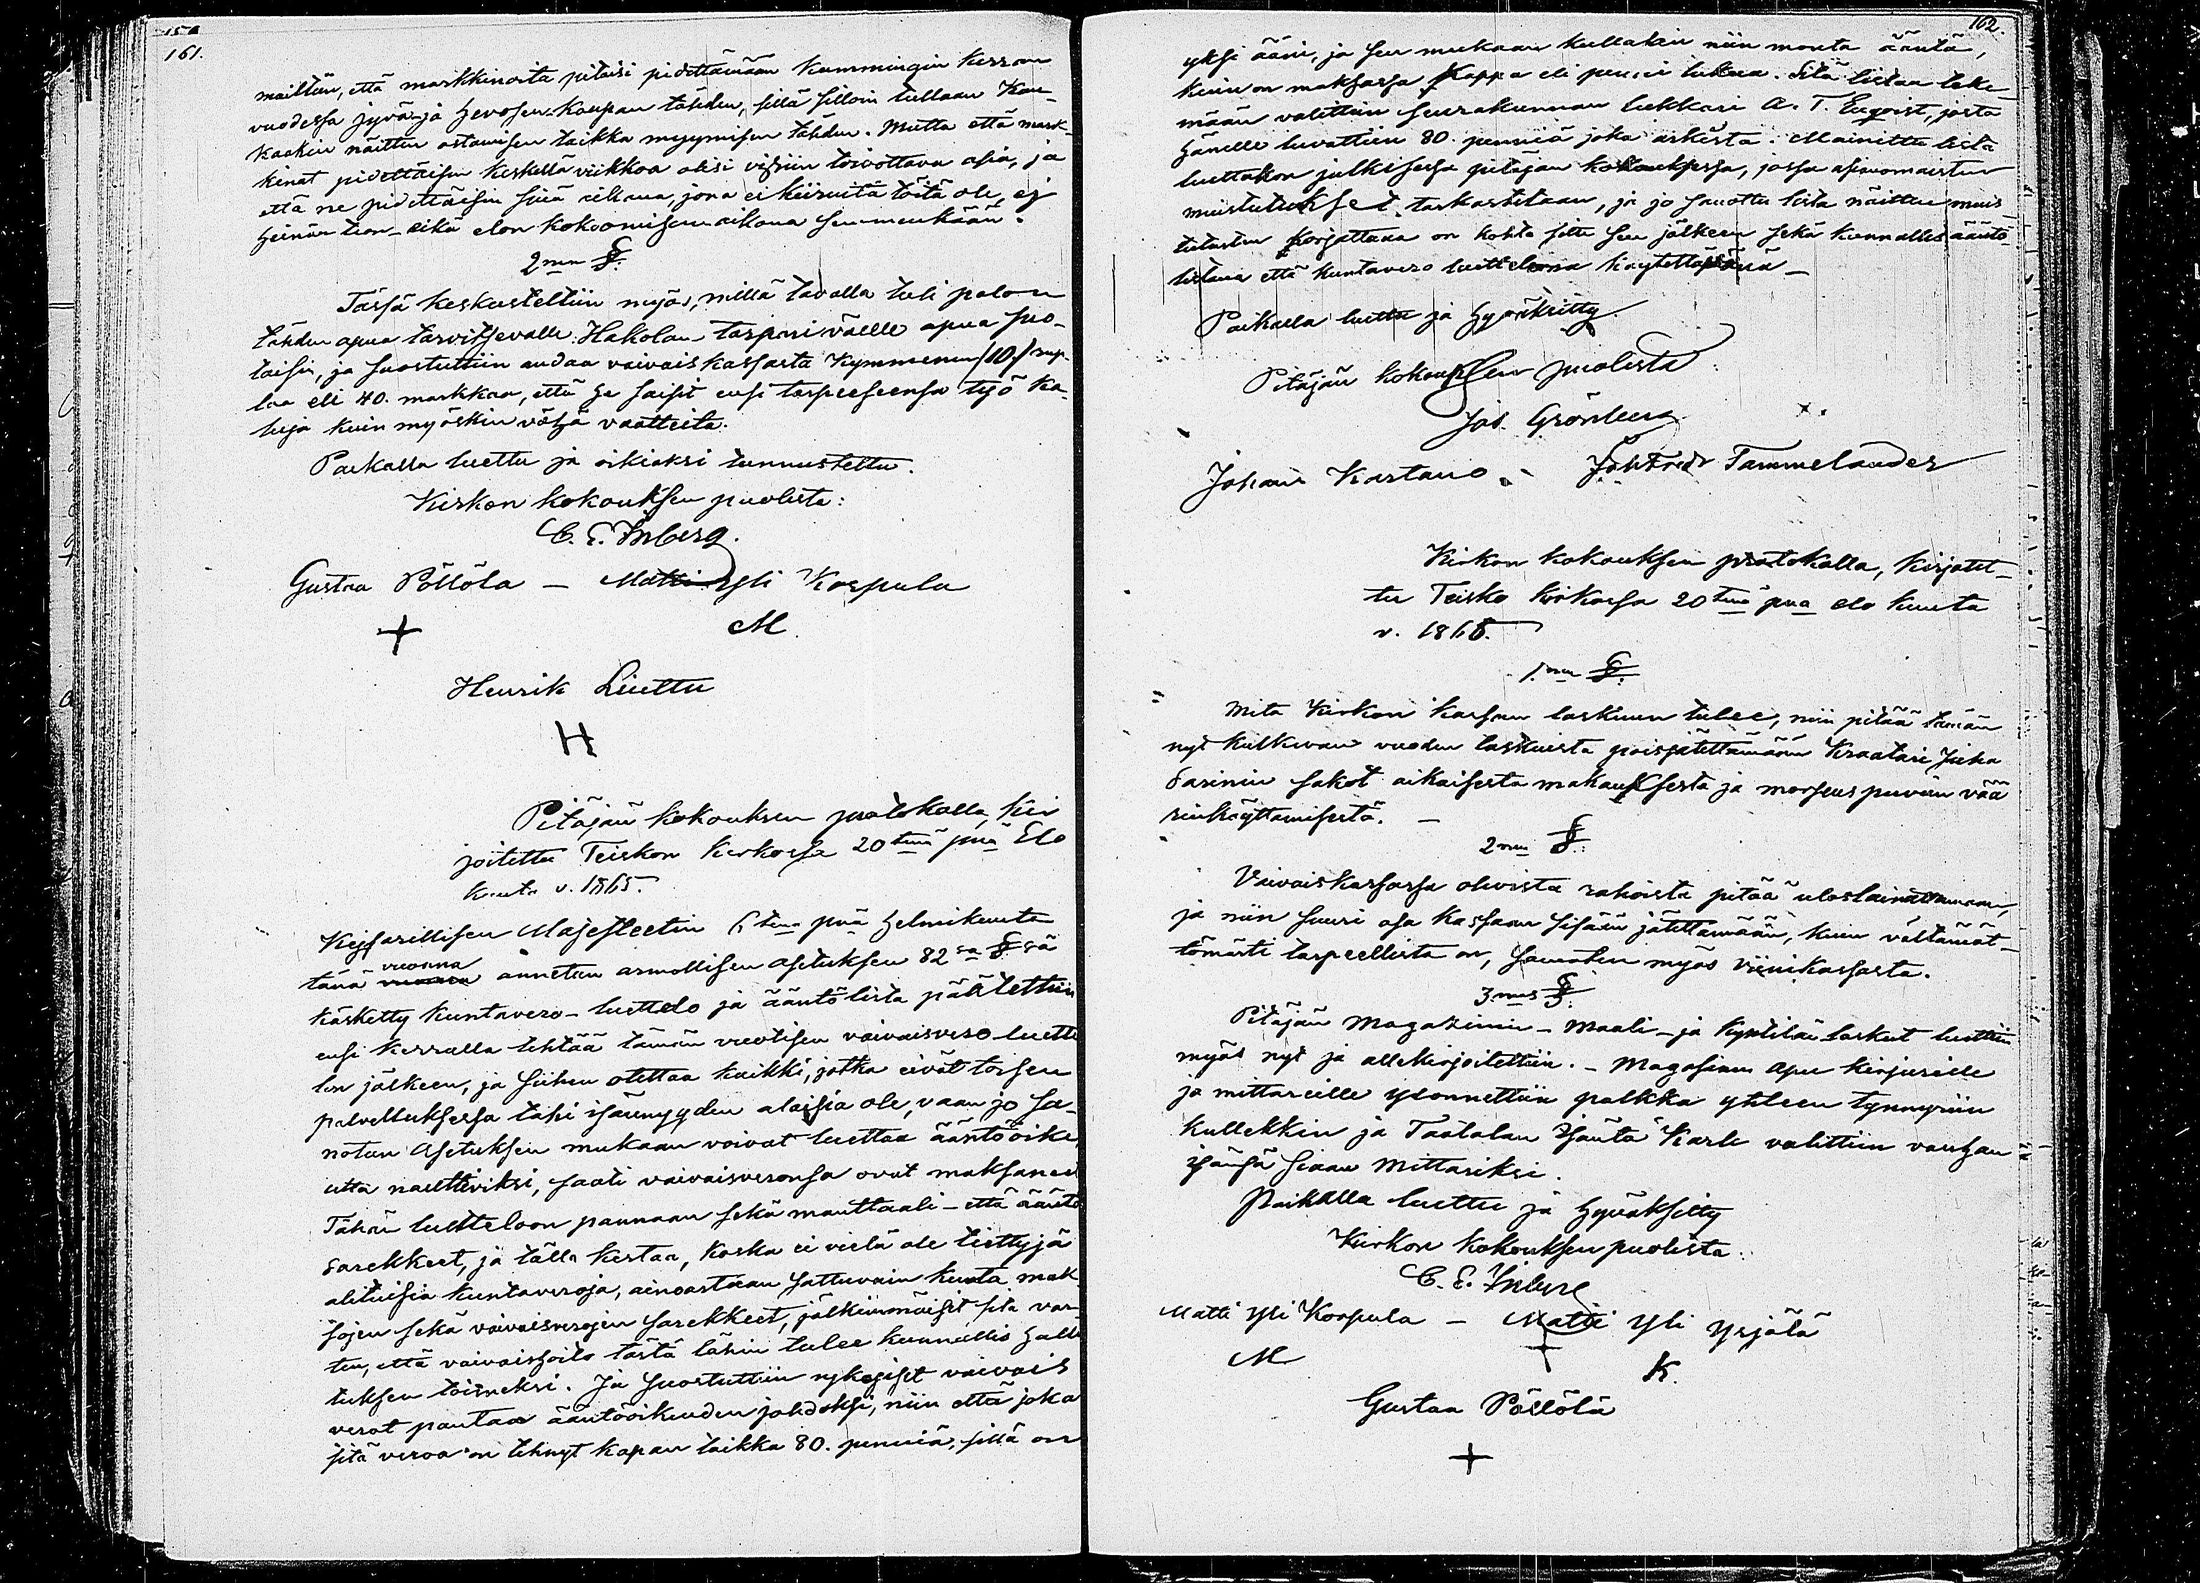 161.
maittiin, että markkinoita pitäisi pidettämän kummingin kerran
vuodessa jyvä- ja hevosen kaupan tähden, sillä silloin tullaan kau-
kaakin näitten ostamisen taikka myymisen tähden. Mutta että mark-
kinat pidettäisin keskellä viikkoa olisi toivottava asia, ja
että ne pidettäisin siiä aikana, jona ei kiiruita töitä ole, ej
heinän teon- eikä elon kokoomisen aikana sen menkään.
2nen §.
Tässä keskusteltiin myös, millä tavalla tuli palon
tähden apua tarvitsevalle Hakolan torpan väelle apua suo-
taisin, ja suostuttiin andaa vaivaiskassasta kymmenen (10) rup-
laa eli 40. markkaa, että he saisit ensi tarpeeseensa työ ka-
luja kuin myöskin vähä vaatteita.
Paikalla luettu ja oikiaksi tunnustettu.
Kirkon kokouksen puolesta:
C. E. Inberg.
Gustaa Pöllölä — Matti Yli Korpula
+ M
Henrik Liuttu
H
Pitäjän kokouksen protokolla, kir
joitettu Teiskon kirkossa 20tenä pnä Elo
kuuta v. 1865.
Kejsarillisen Majesteetin 6tena pnä Helmikuuta
tänä vuonna annetun armollisen asetuksen 82sa §sä
käsketty kuntavero-luettelo ja ääntölista päätettiin
ensi kerralla tehtää tämän vuotisen vaivaisvero luette
lon jälkeen, ja siihen otettaa kaikki, jotka eivät toisen
palvelluksessa tahi isännyyden alaisia ole, vaan jo sa-
notun Asetuksen mukaan voivat luettaa ääntöoike
utta nauttiviksi, saati vaivaisveronsa ovat maksaneet
Tähän luetteloon pannaan sekä manttaali- että ääntö
sarekkeet, ja tällä kertaa, koska ei vielä ole tiettyjä
alituisia kuntaveroja, ainoastaan sattuvain kunta mak
sojen sekä vaivaisverojen sarekkeet, jälkimmäiset sitä var-
ten, että vaivaishoito tästä lähin tulee kunnallis halli
tuksen toimeksi. Ja suostuttiin nykyiset vaivais
verot pantaa ääntöoikeuden johdoksi, niin että joka
sitä veroa on tehnyt kapan taikka 80. penniä, sillä on
162.
yksi ääni, ja sen mukaan kullakin niin monta ääntä,
kuin on maksossa kappa eli penni lukua. Sitä listaa teke-
mään valittiin seurakunnan lukkari A. T. Enqvist, josta
hänelle luvattiin 80. penniä joka arkista. Mainittu lista
luettakon julkisessa pitäjän kokouksessa, jossa asianomaisten
muistutukset tarkastetaan, ja jo sanottu lista näitten muis
tutusten korjattava on kohta sitte sen jälkeen sekä kunnallis ääntö
listana että kuntavero luettelona käytettävä
Paikalla luettu ja hyväksitty.
Pitäjän kokouksen puolesta:
Jos. Grönberg
Johan Kartano. Joh Fredr Tammelander
Kirkon kokouksen protokolla, kirjotet-
tu Teisko kirkossa 20tenä pnä elo kuuta
v. 1865.
1nen §.
Mitä Kirkon kassan laskuun tulee, niin pitää tämän
nyt kulkevan vuoden laskuista poisjätettämän Kraatari Juha
Sarinin sakot aikaisesta makauksesta ja morseus puvun vää
rinkäyttämisestä. —
2nen §.
Vaivaiskassassa olevista rahoista pitää uloslainattaman,
ja niin suuri osa kassaan sisään jätettämään, kuin välttämät-
tömästi tarpeellista on, samaten myös viinikassasta.
3mas §.
Pitäjän Magazinin - maali - ja kyntilän laskut luettiin
myös nyt ja allekirjoitettiin. - Magasinin apu kirjurille
ja mittareille ylönnettiin palkka yhteen tynnyriin
kullekkin ja Taatalan Isäntä Karle valittiin vanhan
isänsä siaan Mittariksi.
Paikalla luettu ja hyväksitty
Kirkon kokouksen puolesta:
C. E. Inberg
Matti Yli Korpula — Matti Yli Yrjälä
M + K.
Gustaa Pöllölä
+